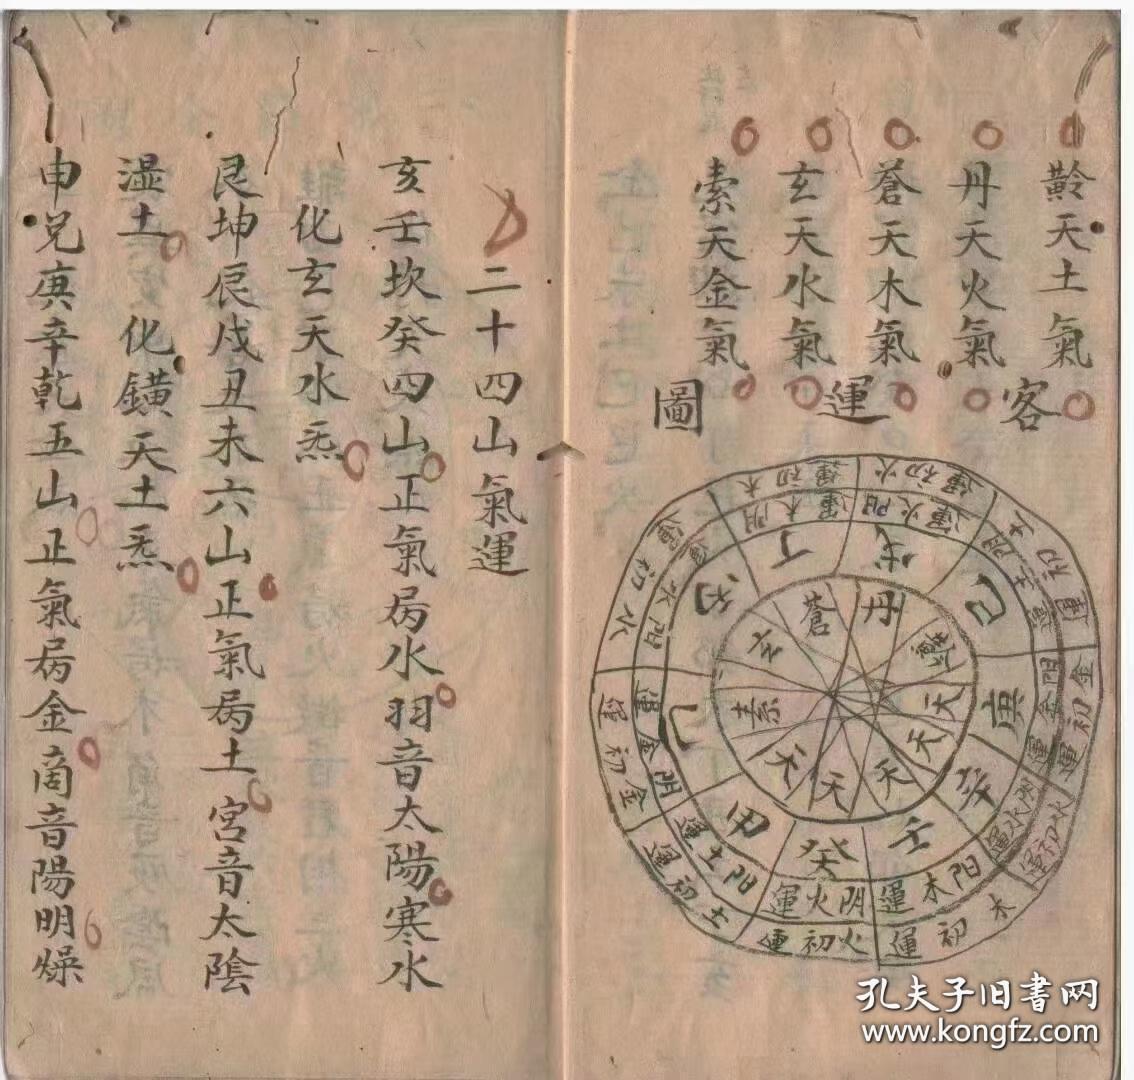 黅天土氣
丹天火氣
蒼天木氣
玄天水氣
索天金氣
客運圖
丹
蒼
玄
素
天
天
天
天
天
己
戊
丁
丙
乙
甲
癸
壬
辛
庚
火初運
木初運
水初運
金初運
土初運
火初運
木初運
火初運
金初運
土初運
阳火運
阴木運
阳水運
阴金運
阳土運
阴火運
阳木運
阴金運
二十四山氣運
亥壬坎癸四山正氣屬水羽音太陽寒水
化玄天水炁
艮坤辰戍丑未六山正氣局土宮音太陰
湿土化鐄天土炁
申兑庚辛乾五山正氣局金商音陽明燥
孔夫子旧書网
www.kongfz.com